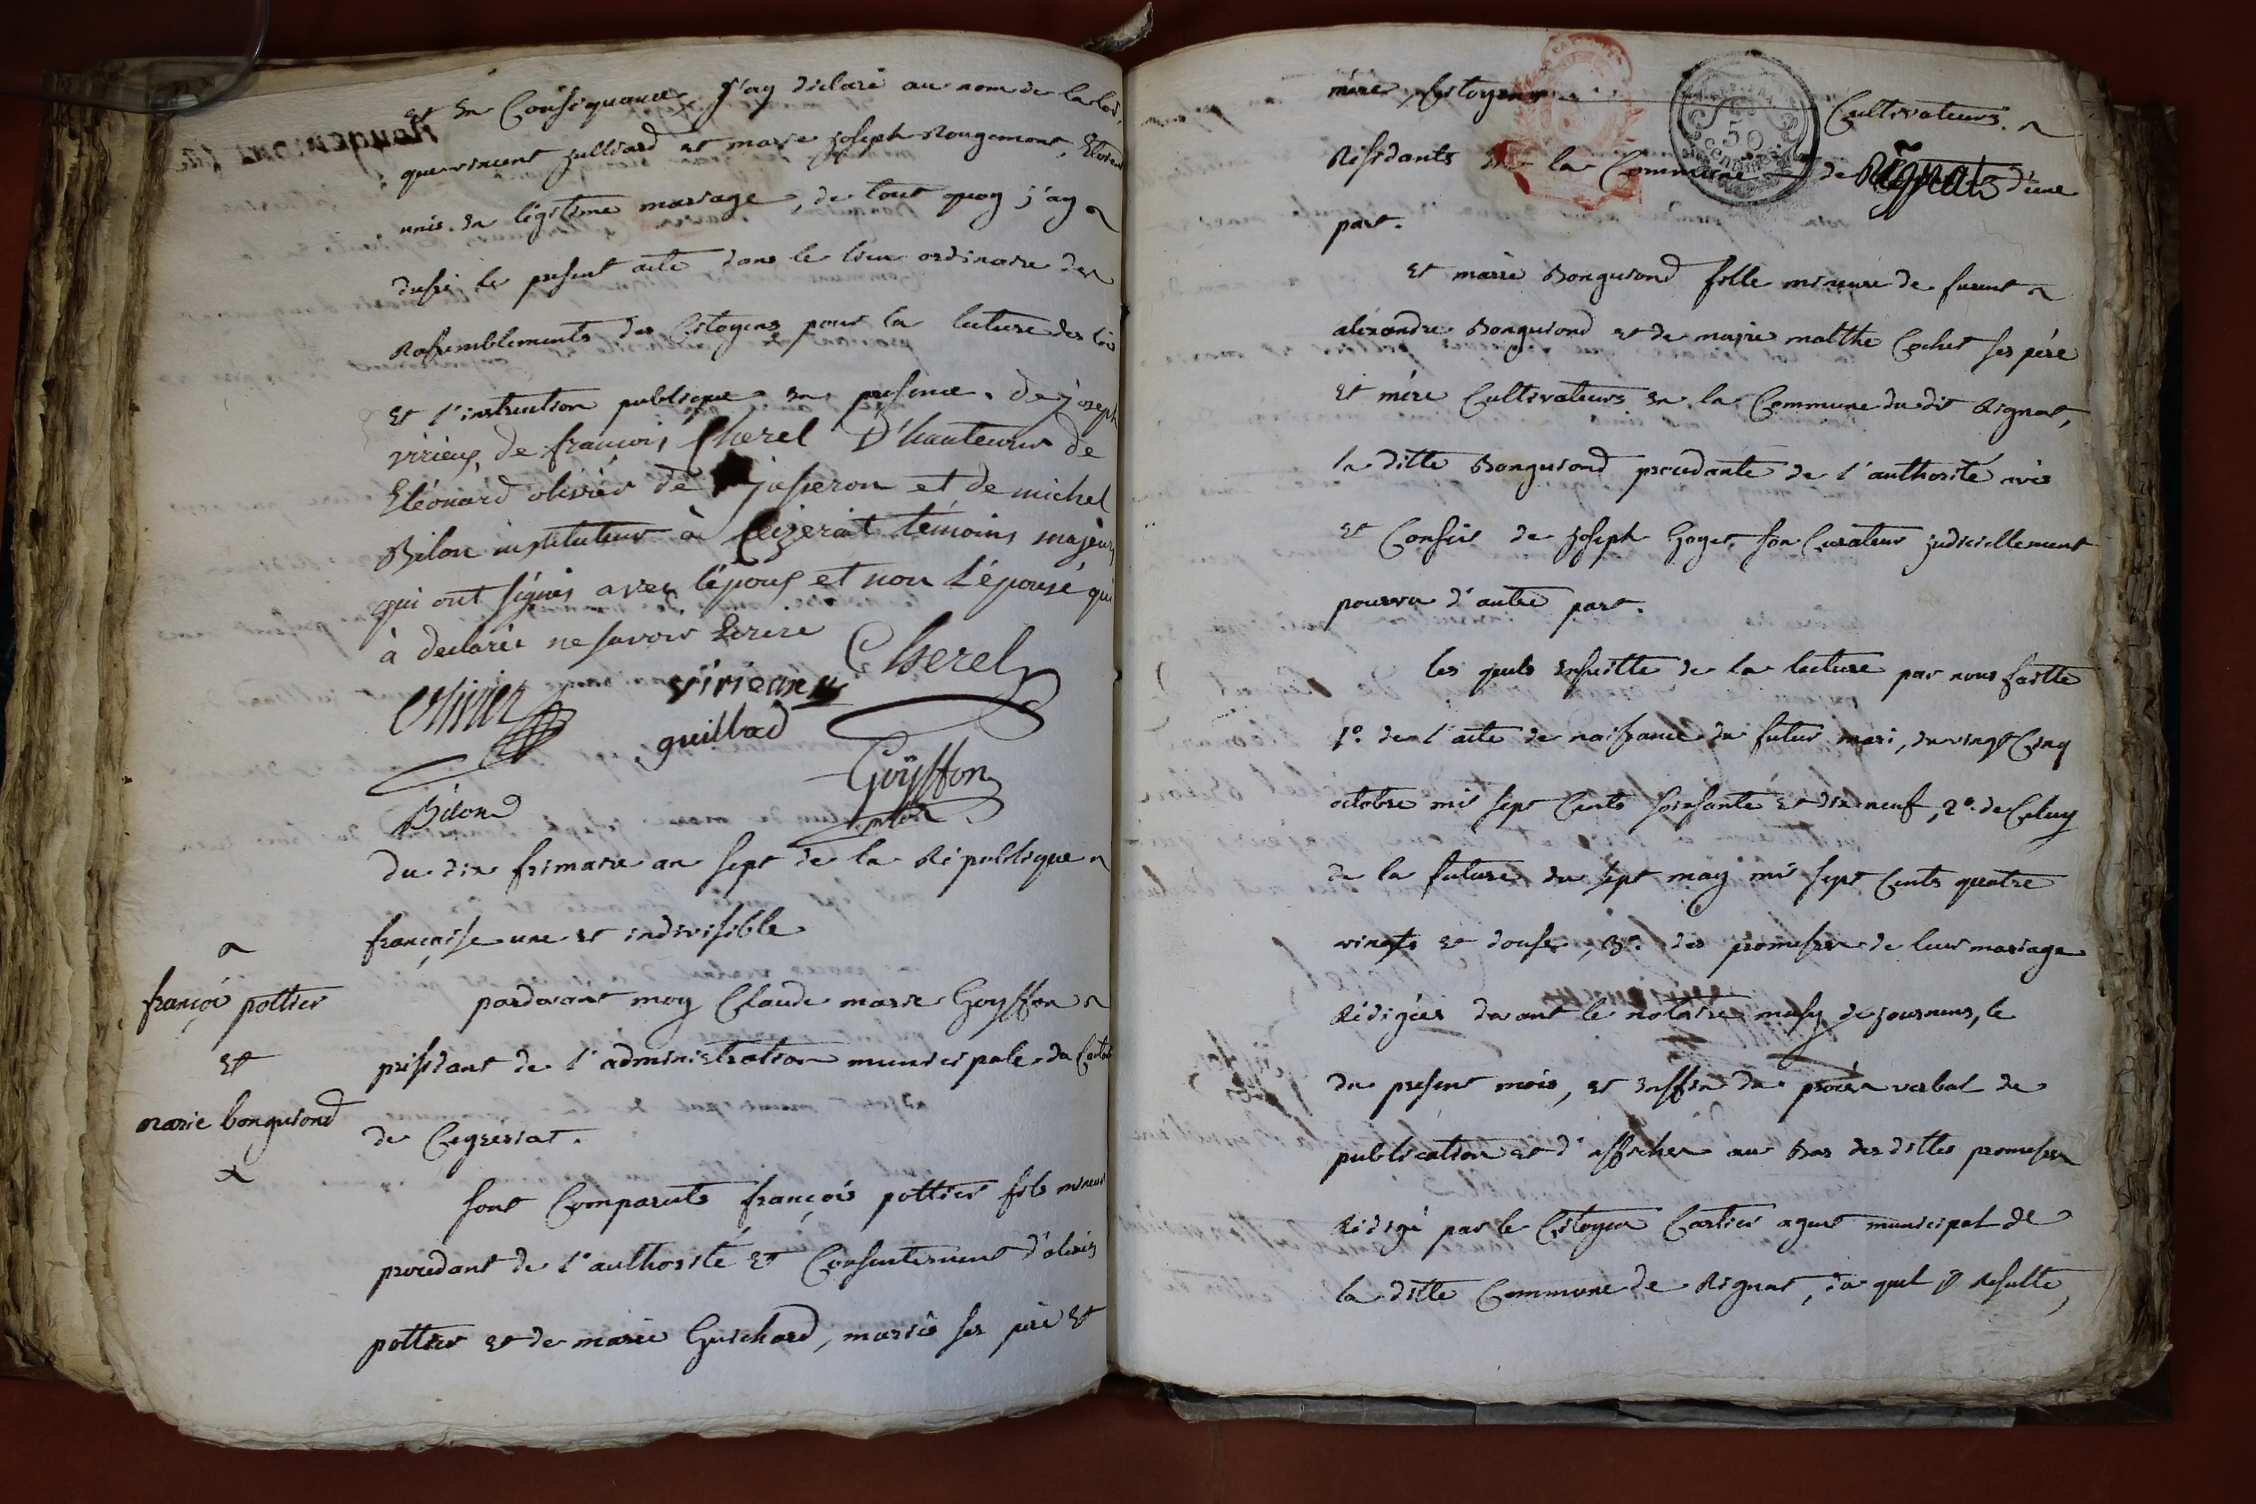 et en Conséquance j'ay déclaré au nom de la loi,
que vincent julliard et marie joseph Rougemont, Etoient
unis en légitime mariage, de tout quoy j'ay
dressé le présent acte dans le lieu ordinaire des
Rassemblements des Citoyens pour la lecture des lois
et l'instruction publique en présence de joseph
virieux, de françois Cherel D'hauteur de
Eléonard olivier de jasseron et de michel
Bilon instituteur à Ceizeriat témoins majeurs
qui ont signés avec l'épous et non L'épouse qui
à declarée ne savoir Ecrire
Cherel
olivier
virieux
guillad
Goÿffon
Bilon
du dix frimaire an sept de la République
française une et indivisible
françois pottier
Et
marie bonguiond
pardavant moy Claude marie Goyffon
présidant de l'administration municipale du Canton
de Ceyzeriat.
sont Comparuts françois pottier fils mineur
procedant de l'authorité et Consentement d'olivier
pottier et de marie Guichard, mariés ses père et
mère, Citoyens Cultivateurs
50
centimes
Résidants en la Commune de Rignat d'une
part.
et marie Bonguiond fille mineure de furent
aléxandre Bonguiond et de marie malthe Cochet ses père
et mère Cultivateurs en la Commune du dit Rignat,
la ditte Bonguiond procedante de l'authorité avis
et Conseil de joseph Goyet son Curateur judiciellement
pourvu d'autre part.
les quels ensuitte de la lecture par nous faitte
1º. de l'acte de naissance du futur mari, du vingt Cinq
octobre mil sept Cents soixante et dix neuf, 2º. de Celuy
de la future du sept may mil sept Cents quatre
vingts et douse, 3º. des promesses de leur mariage
Rédigées devant le notaire musy de journans, le
du présent mois, et enffin du procès verbal de
publication et d'affiches au Bas des dittes promesses
Rédigé par le Citoyen Cartier agent municipal de
la ditte Commune de Rignat, du quel il Résulte,